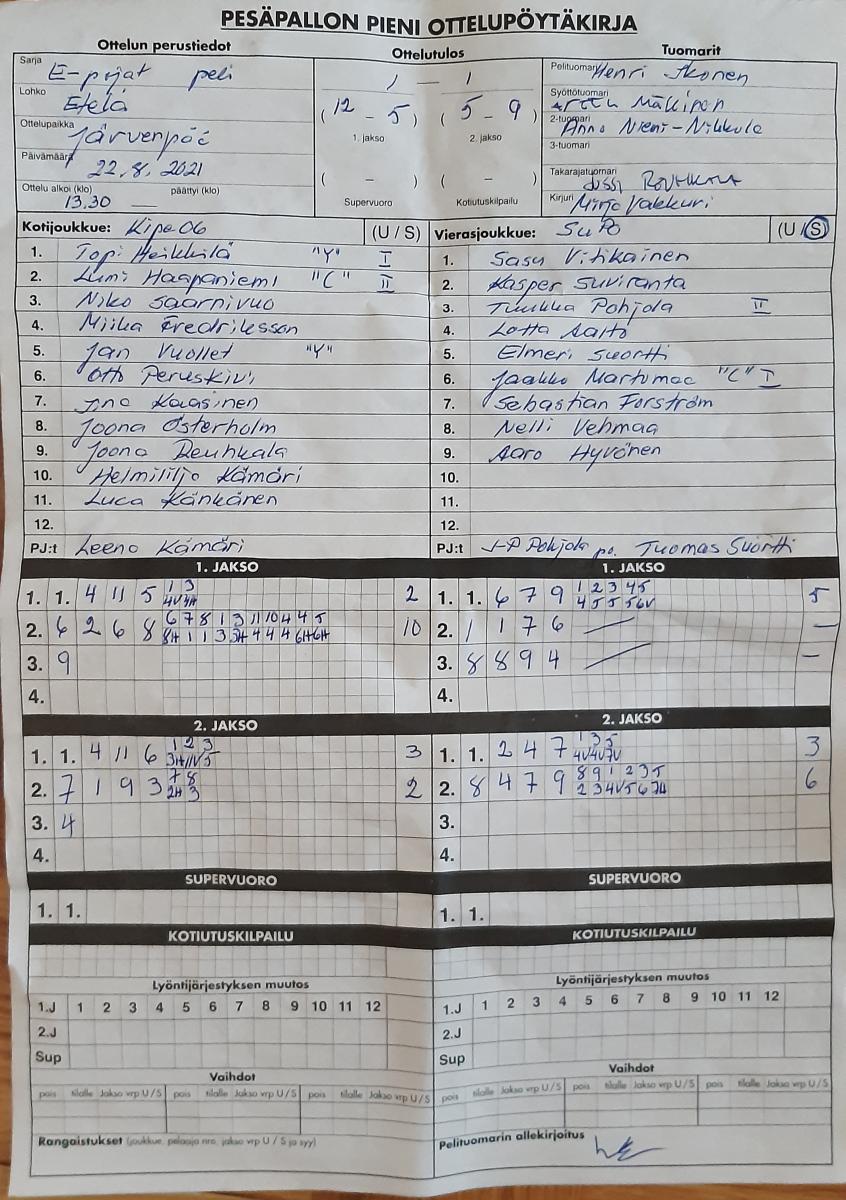 PESÄPALLON PIENI OTTELUPÖYTÄKIRJA
Ottelun perustiedot
Sarja E-pojat peli
Lohko Etelä
Ottelupaikka Järvenpää
Päivämäärä 22.8.2021
Ottelu alkoi (klo) päättyi (klo)
13.30 —
Ottelutulos
1 — 1
(12 - 5) (5 - 9)
1. jakso 2. jakso
( - ) ( - )
Supervuoro Kotiutuskilpailu
Tuomarit
Pelituomari Henri Ikonen
Syöttötuomari Mällinen
2-tuomari Anna Niemi-Nikkola
3-tuomari
Takarajatuomari Jussi
Kirjuri Mirja Vakkuri
Kotijoukkue: Kipa 06 (U / S)
1. Topi Heikkilä "Y" I
2. Lumi Haapaniemi "C" II
3. Niko Saarnivuo
4. Miika Fredriksson
5. Jan Vuollet "Y"
6. Otto Peruskivi
7. Kaasinen
8. Joona Österholm
9. Joona Reuhkala
10. Helmililja Kämäri
11. Luca Känkänen
12.
PJ:t Leena Kämäri
Vierasjoukkue: SuPo (U / S)
1. Sasu Vitikainen
2. Kasper Suviranta
3. Tuukka Pohjola II
4. Lotta Aalto
5. Elmeri Suortti
6. Jaakko Martumaa "C" I
7. Sebastian Forström
8. Nelli Vehmaa
9. Aaro Hyvönen
10.
11.
12.
PJ:t J-P Pohjola po. Tuomas Suortti
1. JAKSO
1. 1. 4 11 5 1 3 2
4V 4H
2. 6 2 6 8 6 7 8 1 3 11 10 4 4 5 10
8H 1 1 3 3H 4 4 4 6H 6H
3. 9
4.
1. JAKSO
1. 1. 6 7 9 1 2 3 4 5 5
4 5 5 5 6V
2. 1 1 7 6 —
3. 8 8 9 4 —
4.
2. JAKSO
1. 1. 4 11 6 1 2 3 3
3H 11V 5
2. 7 1 9 3 7 8 2
2H 3
3. 4
4.
2. JAKSO
1. 1. 2 4 7 1 3 5 3
4V 4V 7V
2. 8 4 7 9 8 9 1 2 3 5 6
2 3 4V 5 6 7H
3.
4.
SUPERVUORO
1. 1.
SUPERVUORO
1. 1.
KOTIUTUSKILPAILU
KOTIUTUSKILPAILU
Lyöntijärjestyksen muutos
1.J 1 2 3 4 5 6 7 8 9 10 11 12
2.J
Sup
Lyöntijärjestyksen muutos
1.J 1 2 3 4 5 6 7 8 9 10 11 12
2.J
Sup
Vaihdot
pois tilalle Jakso vrp U / S pois tilalle Jakso vrp U / S pois tilalle Jakso vrp U / S
Vaihdot
pois tilalle Jakso vrp U / S pois tilalle Jakso vrp U / S pois tilalle Jakso vrp U / S
Rangaistukset (joukkue, pelaaja nro, jakso vrp U / S ja syy)
Pelituomarin allekirjoitus